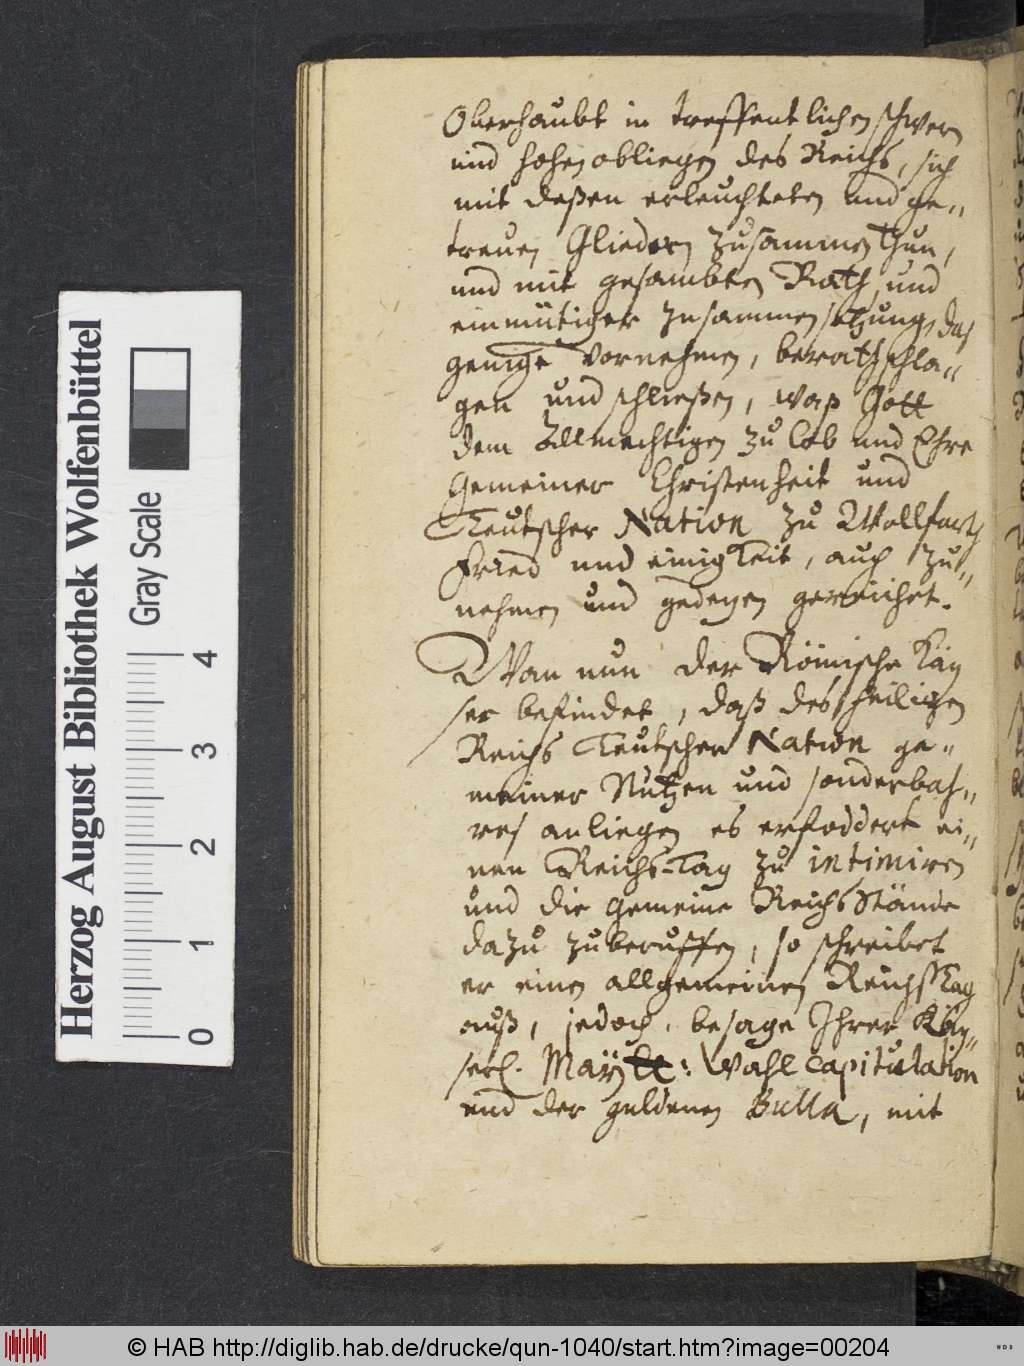 Oberhaubt in treffentlichen schwern
und hohen obliegen des Reichs, sich
mit deßen erleuchteten und ge-
treuen Gliedern zusammen thun,
und mit gesambten Rath und
einmütiger zusammensetzung, das
genige vornehmen, berathschla-
gen und schließen, waß Gott
dem Allmechtigen zu lob und Ehre
Gemeiner Christenheit und
Teutscher Nation zu Wollfarth
Fried und einigkeit, auch zu-
nehmen und gedeyen gereichet.
Wan nun der Römische Käy
ser befindet, daß des heiligen
Reichs Teutscher Nation ge-
meiner Nutzen und sonderbah-
res anliegen es erfoddert ei-
nen Reichs-Tag zu intimiren
und die gemeine ReichsStände
dazu zuberuffen, so schreibet
er einen allgemeinen ReichsTag
auß, jedoch, besage Ihrer Käy-
serl. Maÿtt: Wahl Capitulation
und der guldenen Bulla, mit
Herzog August Bibliothek Wolfenbüttel
Gray Scale
0 1 2 3 4
© HAB http://diglib.hab.de/drucke/qun-1040/start.htm?image=00204